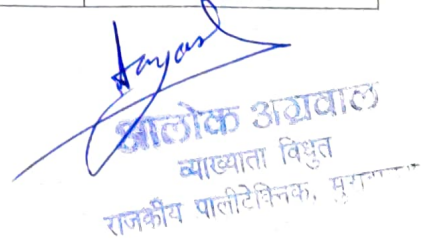 आलोक अग्रवाल
व्याख्याता विधुत
राजकीय पालीटेक्निक,